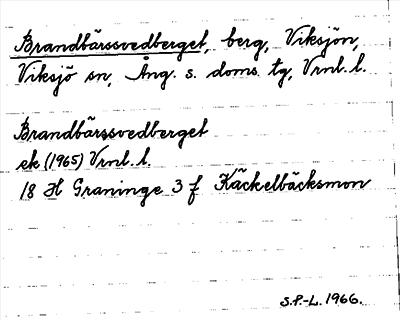 Brandbärssvedberget, berg, Viksjön,
Viksjö sn, Ång. s. doms. tg, Vrnl. l.
Brandbärssvedberget
ek (1965) Vrnl. l.
18 H Graninge 3 f Käckelbäcksmon
S.P.-L. 1966.